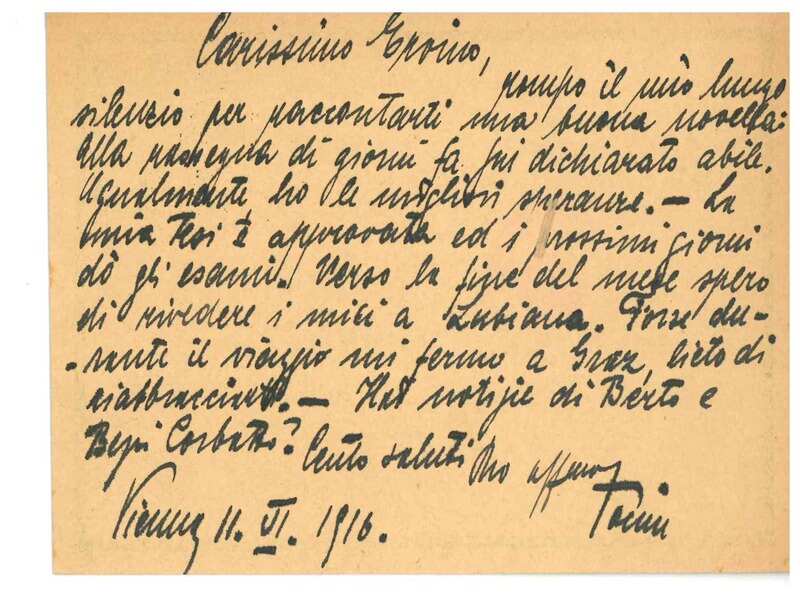 Carissimo Eroino,
rompo il mio lungo
silenzio per raccontarti una buona novella:
alla rassegna di giorni fa fui dichiarato abile.
Ugualmente ho le migliori speranze. — La
mia tesi è approvata ed i prossimi giorni
dò gli esami. Verso la fine del mese spero
di rivedere i miei a Lubiana. Forse du-
-rante il viaggio mi fermo a Graz, lieto di
riabbracciarti. — Hai notizie di Berto e
Bepi Corbatto?
Cento saluti
tuo affmo
Vienna 11. VI. 1916.